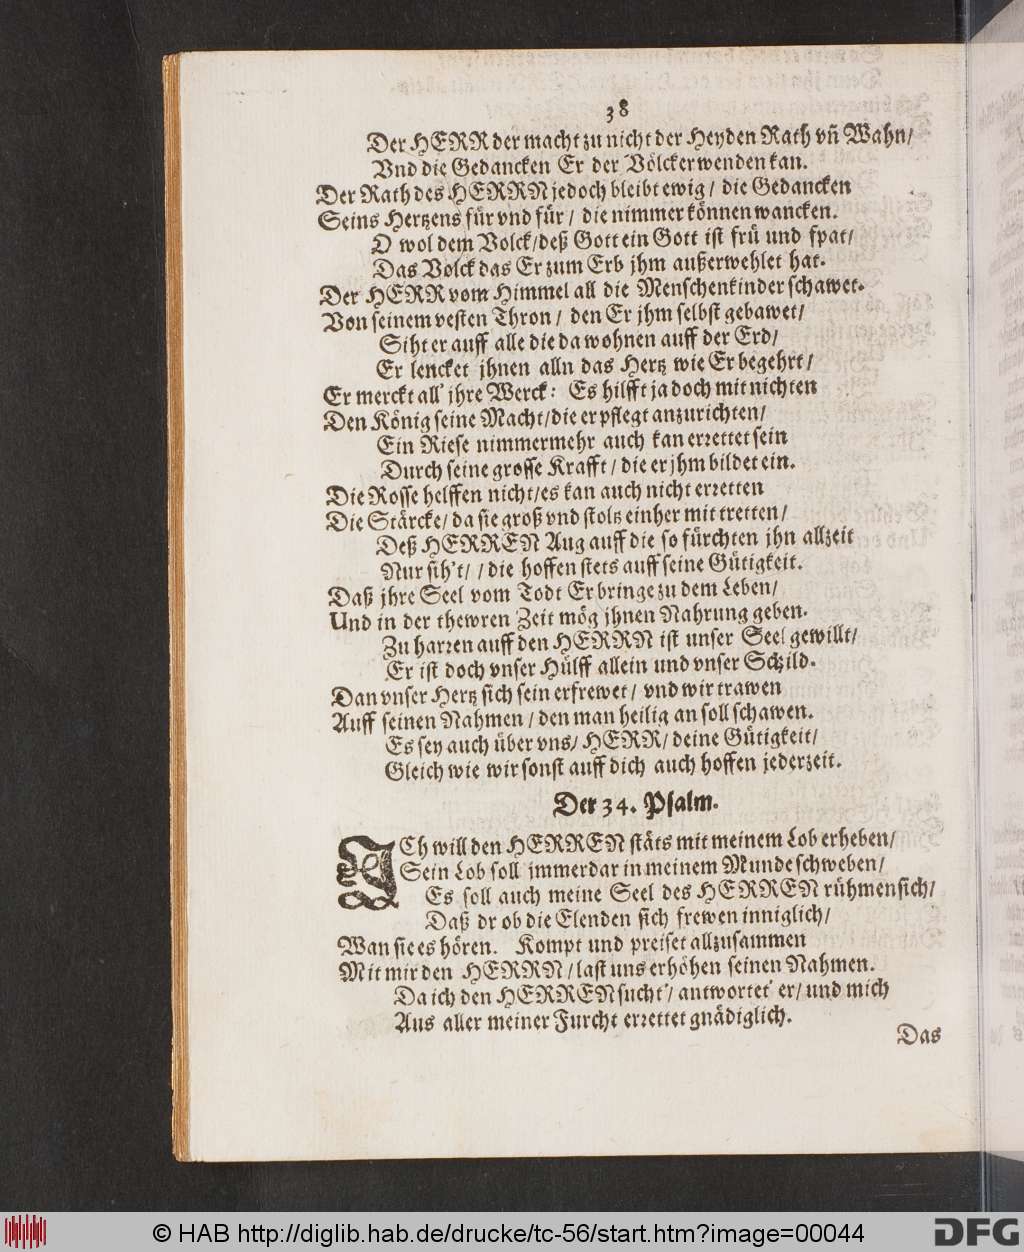 38
Der HERR der macht zu nicht der Heyden Rath vñ Wahn/
Vnd die Gedancken Er der Völcker wenden kan.
Der Rath des HERRN jedoch bleibt ewig / die Gedancken
Seins Hertzens für vnd für / die nimmer können wancken.
O wol dem Volck/deß Gott ein Gott ist frü und spat/
Das Volck das Er zum Erb jhm außerwehlet hat.
Der HERR vom Himmel all die Menschenkinder schawet.
Von seinem vesten Thron / den Er jhm selbst gebawet/
Siht er auff alle die da wohnen auff der Erd/
Er lencket jhnen alln das Hertz wie Er begehrt/
Er merckt all' jhre Werck: Es hilfft ja doch mit nichten
Den König seine Macht/die er pflegt anzurichten/
Ein Riese nimmermehr auch kan errettet sein
Durch seine grosse Krafft / die er jhm bildet ein.
Die Rosse helffen nicht/es kan auch nicht erretten
Die Stärcke/ da sie groß vnd stoltz einher mit tretten/
Deß HERREN Aug auff die so fürchten jhn allzeit
Nur sih't/ / die hoffen stets auff seine Gütigkeit.
Daß jhre Seel vom Todt Er bringe zu dem Leben/
Und in der thewren Zeit mög jhnen Nahrung geben.
Zu harren auff den HERRN ist unser Seel gewillt/
Er ist doch vnser Hülff allein und vnser Schild.
Dan vnser Hertz sich sein erfrewet/ vnd wir trawen
Auff seinen Nahmen / den man heilig an soll schawen.
Es sey auch über vns/ HERR/ deine Gütigkeit/
Gleich wie wir sonst auff dich auch hoffen jederzeit.
Der 34. Psalm.
ICh will den HERREN stäts mit meinem Lob erheben/
Sein Lob soll jmmerdar in meinem Munde schweben/
Es soll auch meine Seel des HERREN rühmen sich/
Daß dr ob die Elenden sich frewen inniglich/
Wan sie es hören. Kompt und preiset allzusammen
Mit mir den HERRN / last uns erhöhen seinen Nahmen.
Da ich den HERREN sucht'/ antwortet' er/ und mich
Aus aller meiner Furcht errettet gnädiglich.
Das
© HAB http://diglib.hab.de/drucke/tc-56/start.htm?image=00044
DFG